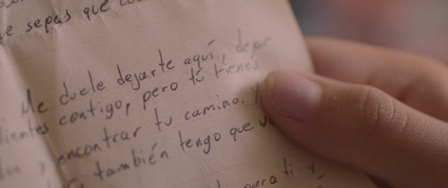 e sepas que
Me duele dejarte aquí, dejar
contigo, pero tú tienes
encontrar tu camino. Y
también tengo que
para ti y